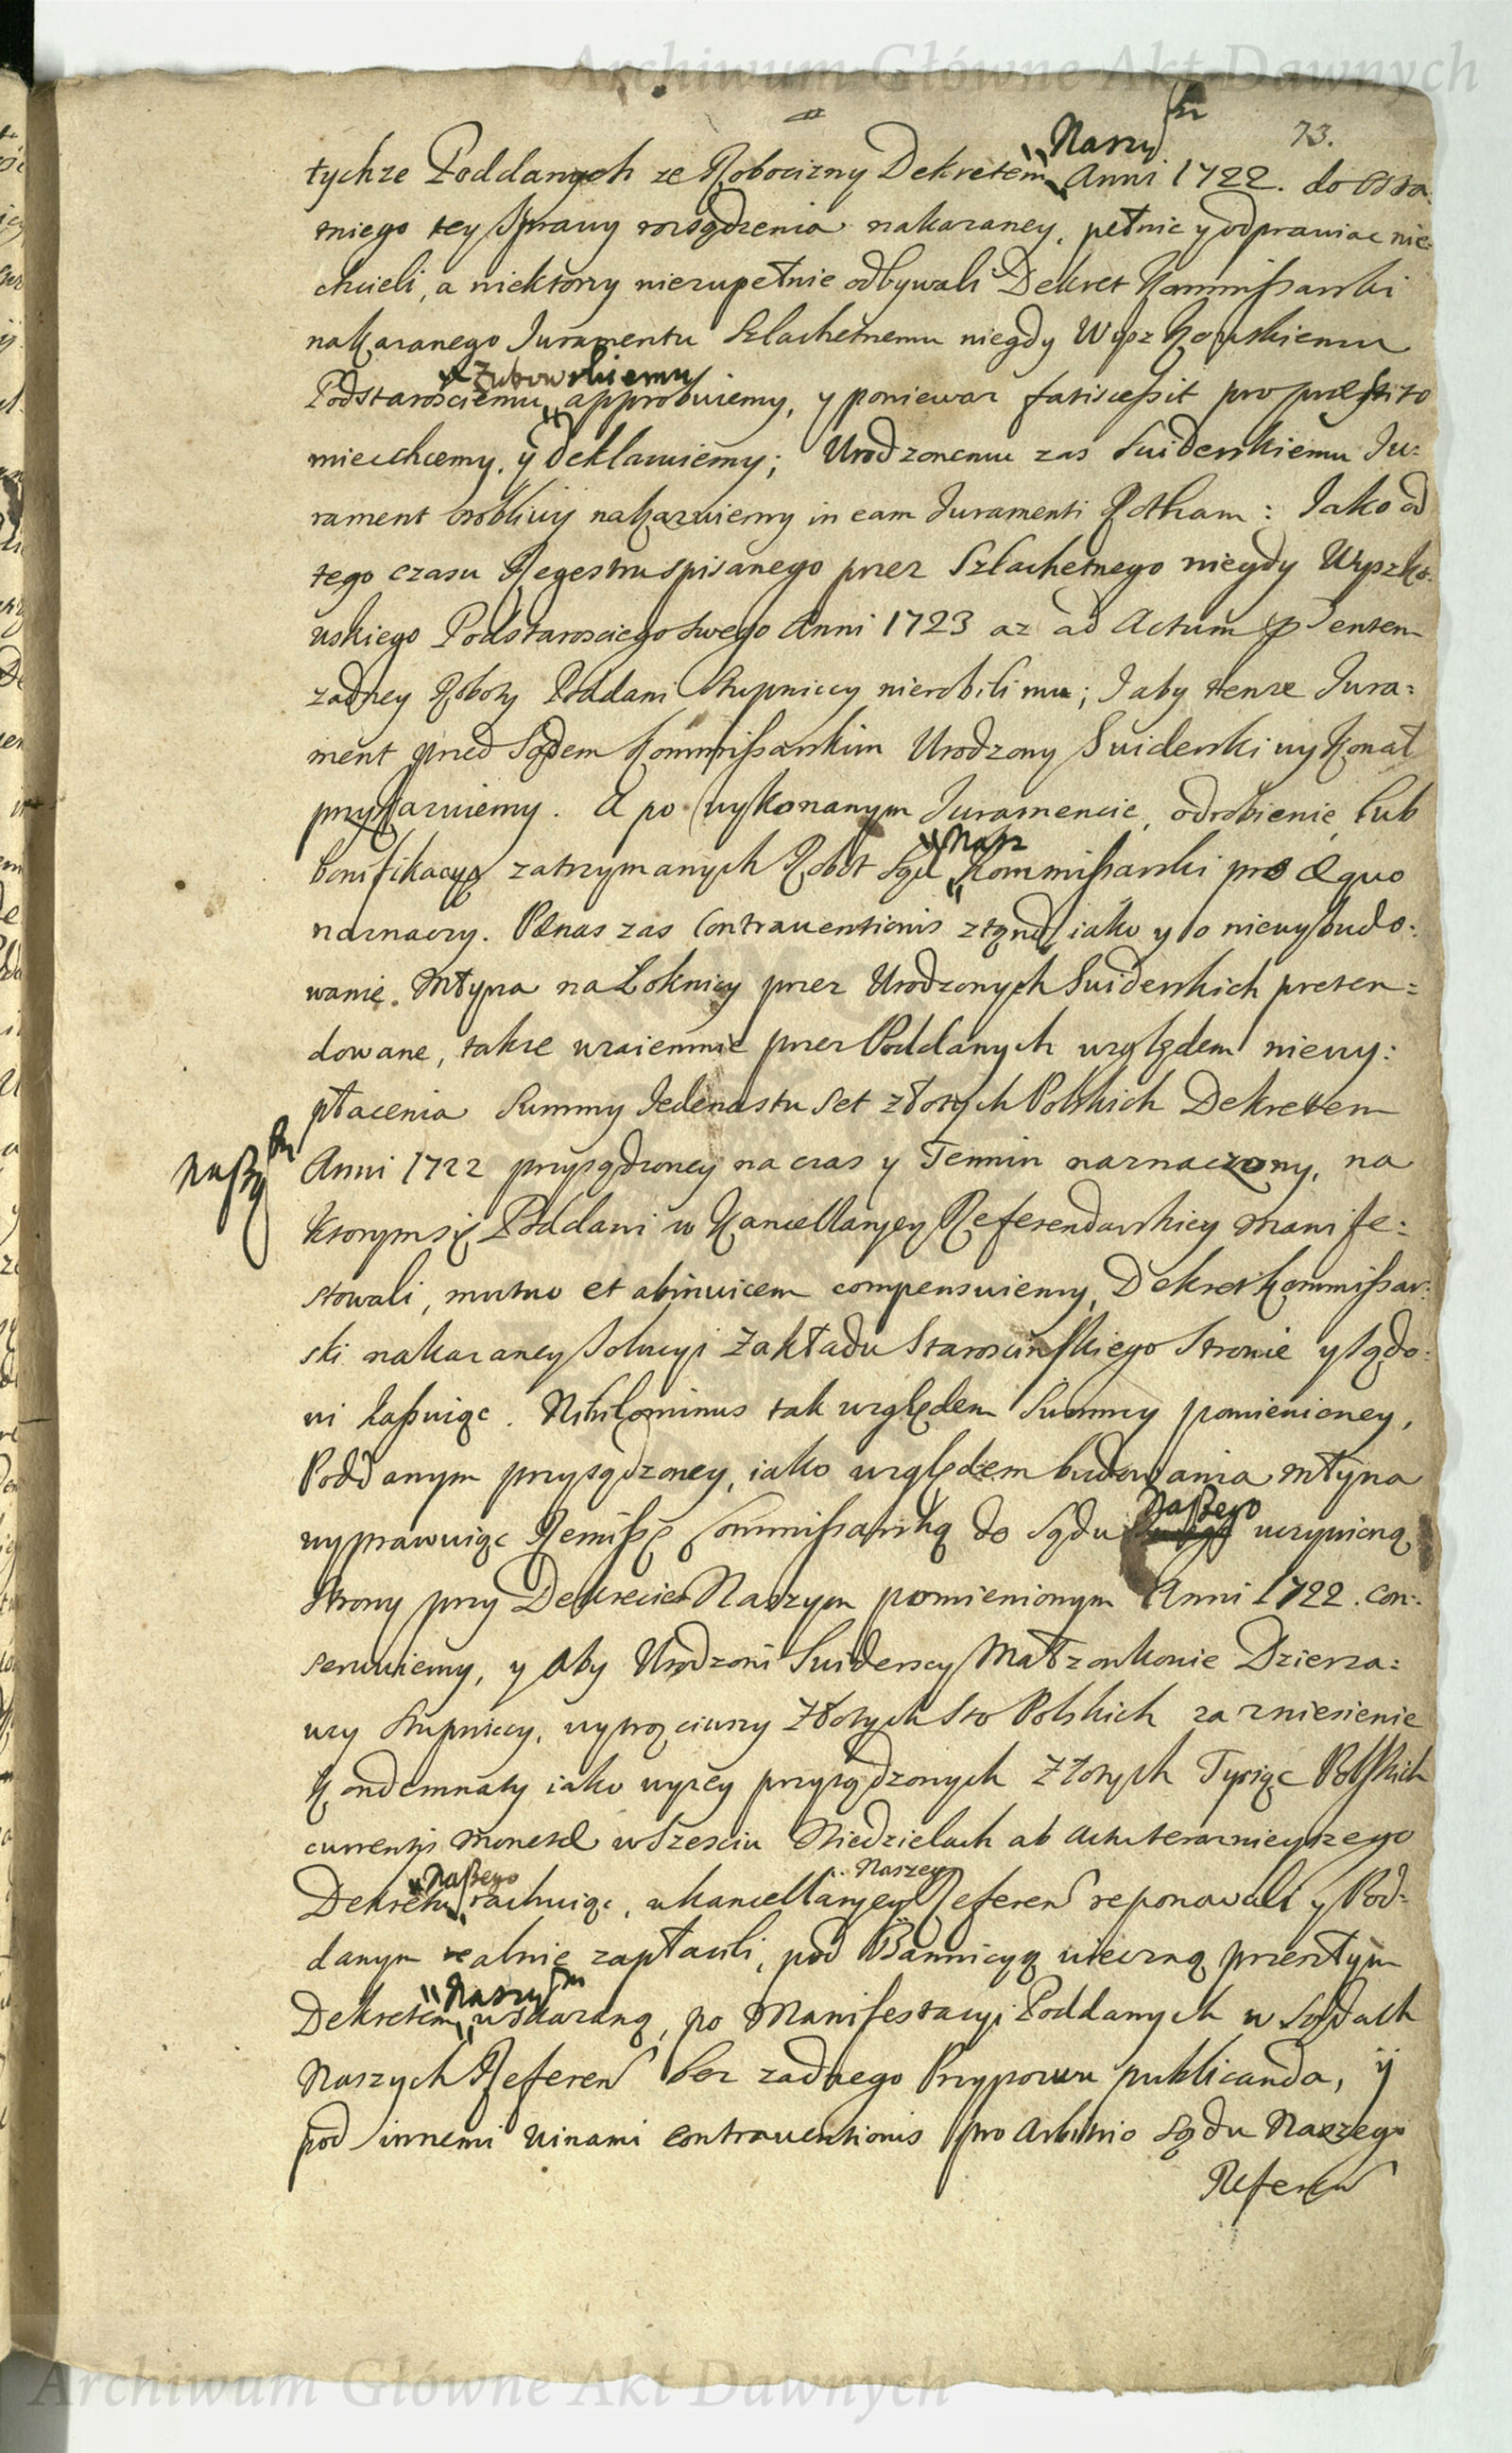 Archiwum Główne Akt Dawnych
73.
Naszym
tychze Poddanych ze Robocizny Dekretem Anni 1722. do osta-
tniego tey sprawy rozsądzenia nakazaney, pełnic y odprawiac nie-
chcieli, a niektorzy niezupełnie odbywali Dekret Kommissarski
nakazanego Juramentu Szlachetnemu niegdy Wyszkowskiemu
Zubowskiemu
Podstarosciemu approbuiemy, y poniewaz satiscessit pro præstito
miecchcemy, y deklaruiemy; Urodzonemu zas Suiderskiemu Ju:
rament osobliwy nakazuiemy in eam Juramenti Rotham: Jako od
tego czasu Regestru spisanego przez Szlachetnego niegdy Wyszko:
wskiego Podstarosciego swego Anni 1723 az ad Actum psentem
zadney Roboty Poddani Stupniccy nierobili mu; J aby tenze Jura:
ment przed Sądem Kommissarskim Urodzony Suiderski wykonał
przykazuiemy. A po wykonanym Juramencie, odrobienie, lub
Nasz
bonifikacyą zatrzymanych Robot Sąd Kommissarski pro æquo
naznaczy. Pænas zas Contraventionis ztąnd, iako y o niewybudo:
wanie Młyna na Łoknicy przez Urodzonych Suiderskich preten:
dowane, takze wzaiemnie przez Poddanych względem niewy:
płacenia Summy Jedenastu Set złotych Polskich Dekretem
Naszym
Anni 1722 przysądzoney na czas y Termin naznaczony, na
ktorym się Poddani w Kancellaryey Referendarskiey manife:
stowali, mutuo et abinvicem compensuiemy, Dekret Kommissar:
ski nakazaney Solucyi Zakładu Staroscinskiego Stronie y Sądo:
wi kassuiąc. Nihilominus tak względem Summy pomienioney,
Poddanym przysądzoney, iako względem budowania młyna
Naszego
wyprawuiąc Remissę Commissarską do Sądu uczynioną
Strony przy Dekrecie Naszym pomienionym Anni 1722. con:
serwuiemy, y aby Urodzoni Suiderscy Małzonkowie Dzierza:
wcy Stupniccy, wytrąciwszy Złotych Sto Polskich za zniesienie
Kondemnaty iako wyzey przysądzonych Złotych Tysiąc Polskich
currentis monetæ w Szesciu Niedzielach ab actu teraznieyszego
Naszego Naszey
Dekretu rachuiąc, w kancellaryey Referen reponowali y Pod-
danym realnie zapłacili, pod Bannicyą wieczną przesztym
Naszym
Dekretem wskazaną, po Manifestacyi Poddanych w Sądach
Naszych Referen bez zadnego Przypozwu publicanda, ÿ
pod innemi winami contraventionis pro arbitrio Sądu Naszego
Referen
Archiwum Główne Akt Dawnych